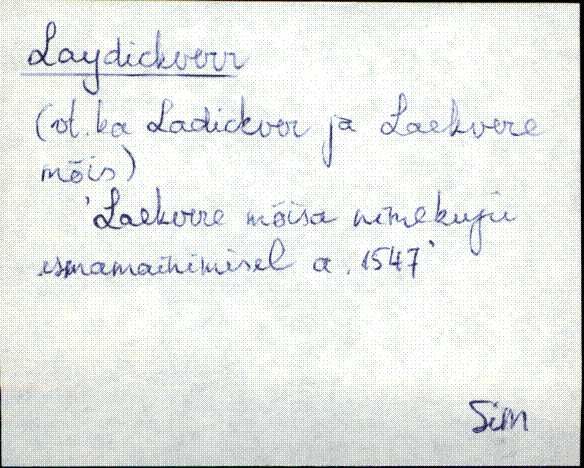 Laydickverr
(vt. ka Ladickver ja Laekvere
mõis)
'Laekvere mõisa nimekuju
esmamainimisel a. 1547'
Sim